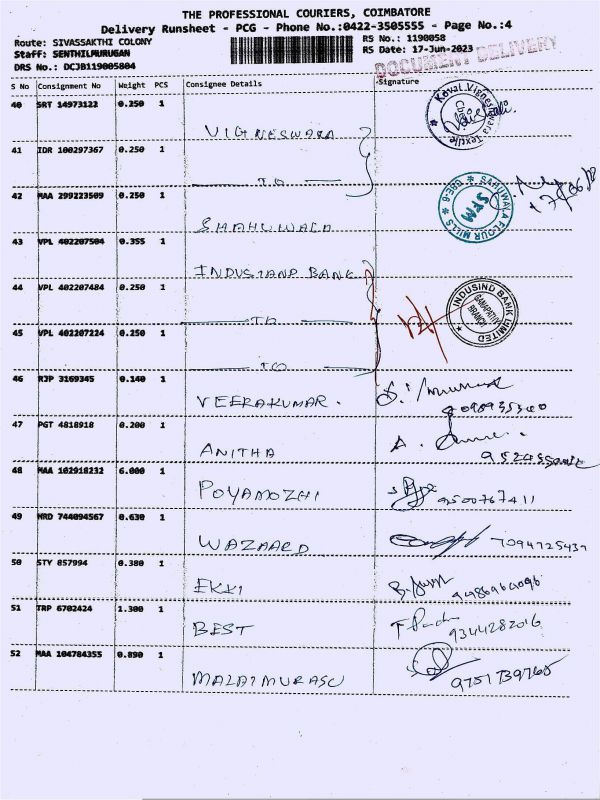 THE PROFESSIONAL COURIERS, COIMBATORE
Delivery Runsheet - PCG - Phone No.:0422-3505555 - Page No.:4
Route: SIVASSAKTHI COLONY RS No.: 1190058
Staff: SENTHILMURUGAN RS Date: 17-Jun-2023
DOCUMENT DELIVERY
DRS No.: DCJB119005804
S No Consignment No Weight PCS Consignee Details Signature
40 SRT 14973122 0.250 1
VIGNESWARA
Koval Vignes Textile
41 IDR 100297367 0.250 1
TD
42 MAA 299223509 0.250 1
SHAHUWALA
SAHUWALA FLOUR MILLS
43 VPL 402207504 0.355 1
INDUSIAND BANK
44 VPL 402207484 0.250 1
TD
INDUSIND BANK LIMITED
GANAPATHY BRANCH
45 VPL 402207224 0.250 1
TO
46 RJP 3169345 0.140 1
VEERAKUMAR.
47 PGT 4818918 0.200 1
ANITHA
48 MAA 102918232 6.000 1
POYAMOZHI
9500767411
49 NRD 744094567 0.630 1
WAZAARD
7094725437
50 STY 857994 0.380 1
EKKI
51 TRP 6702424 1.300 1
BEST
9344282016
52 MAA 104784355 0.890 1
MALAIMURASU
9751739765